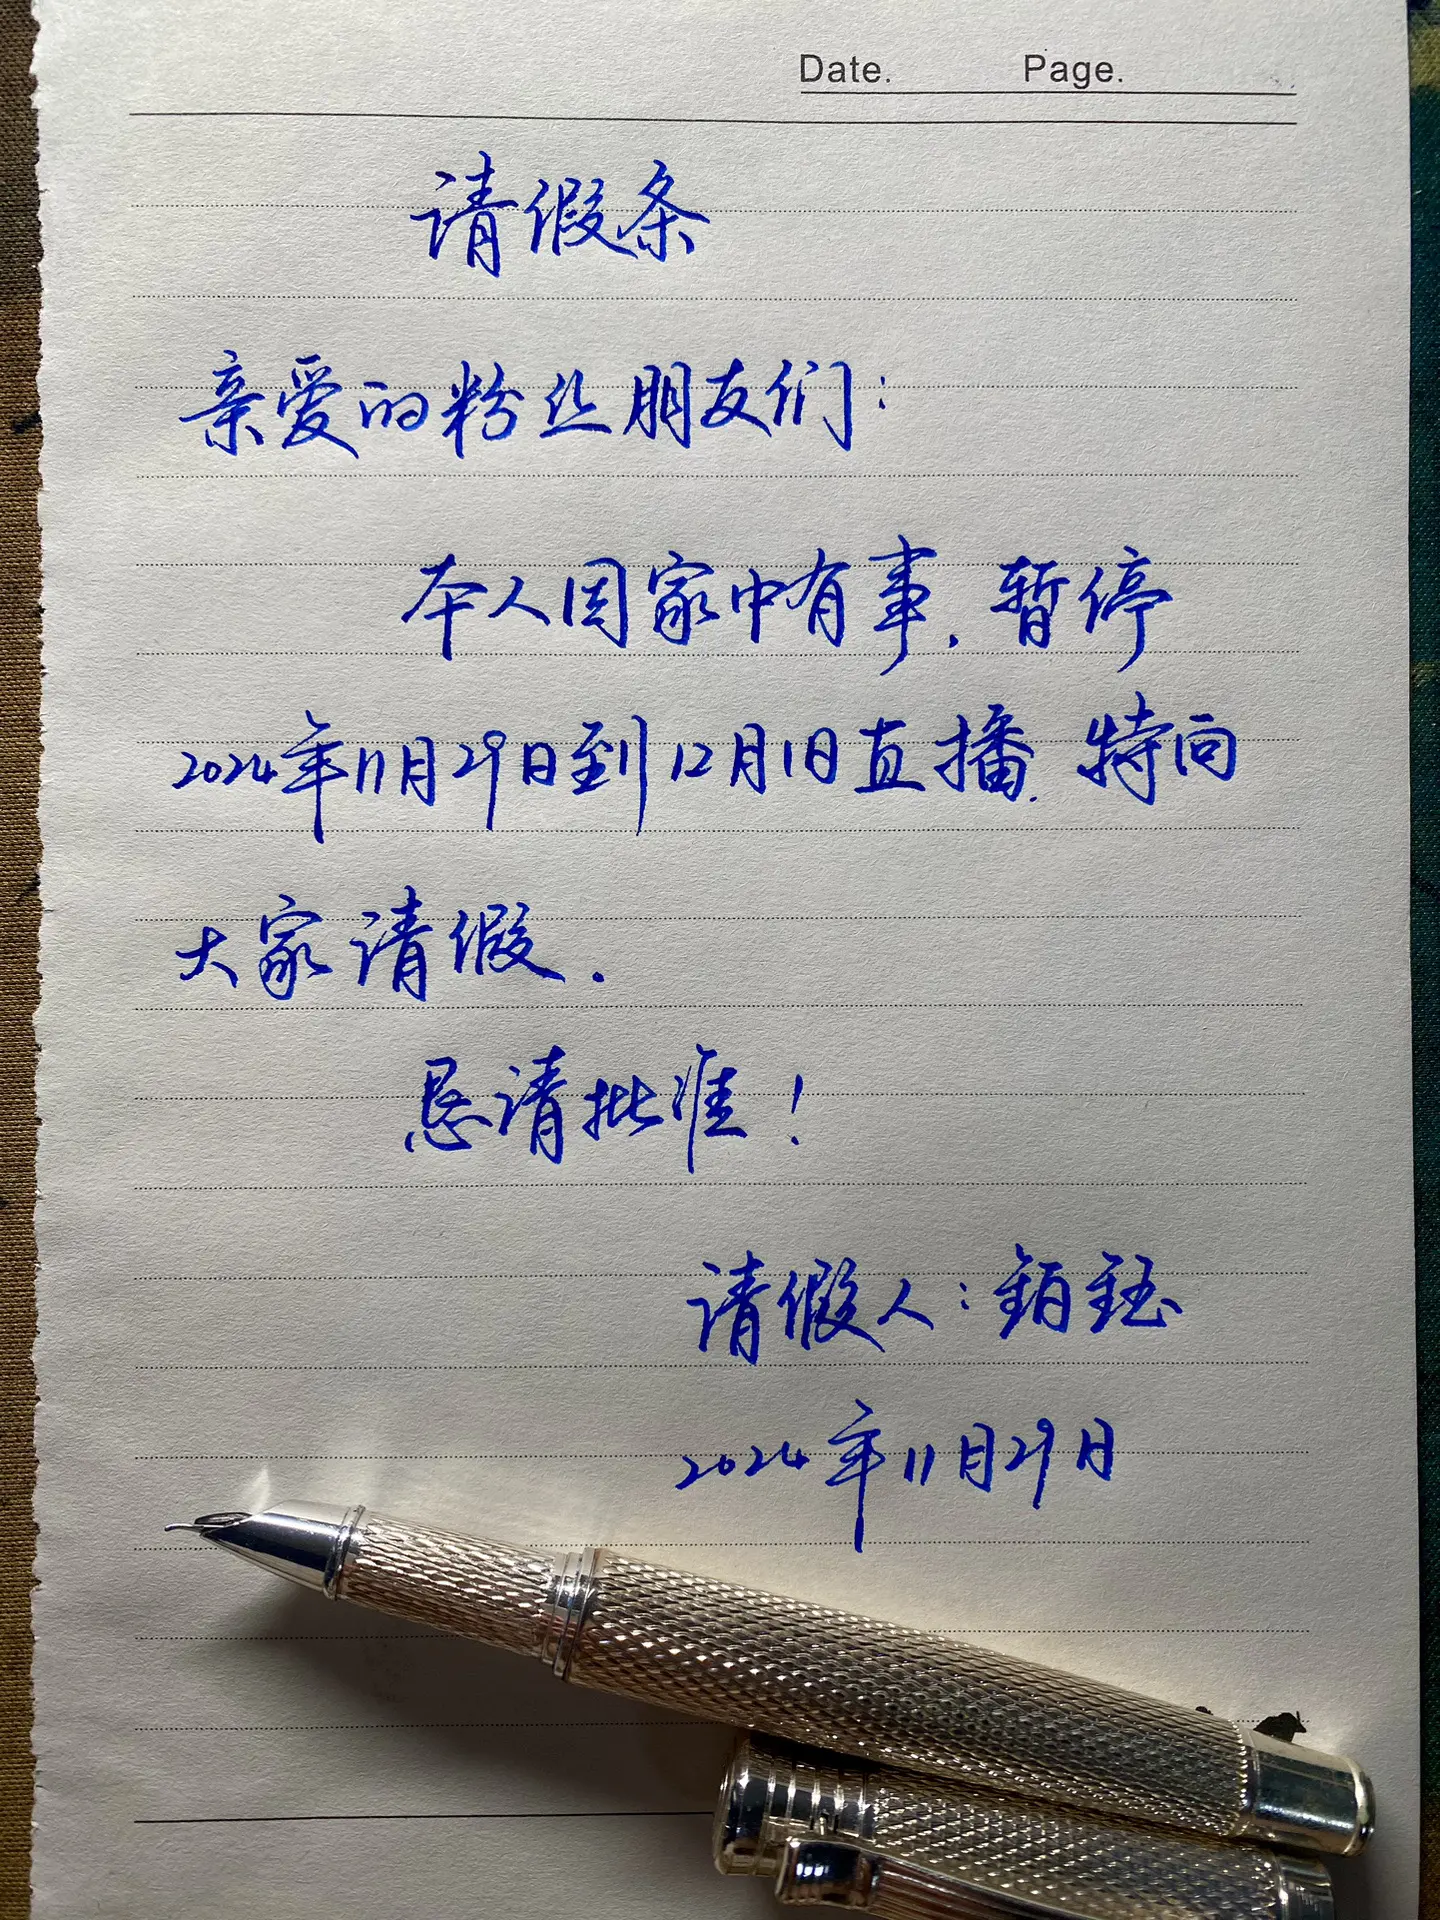 Date. Page.
请假条
亲爱的粉丝朋友们：
本人因家中有事，暂停
2024年11月29日到12月1日直播，特向
大家请假。
恳请批准！
请假人：铂钰
2024年11月29日